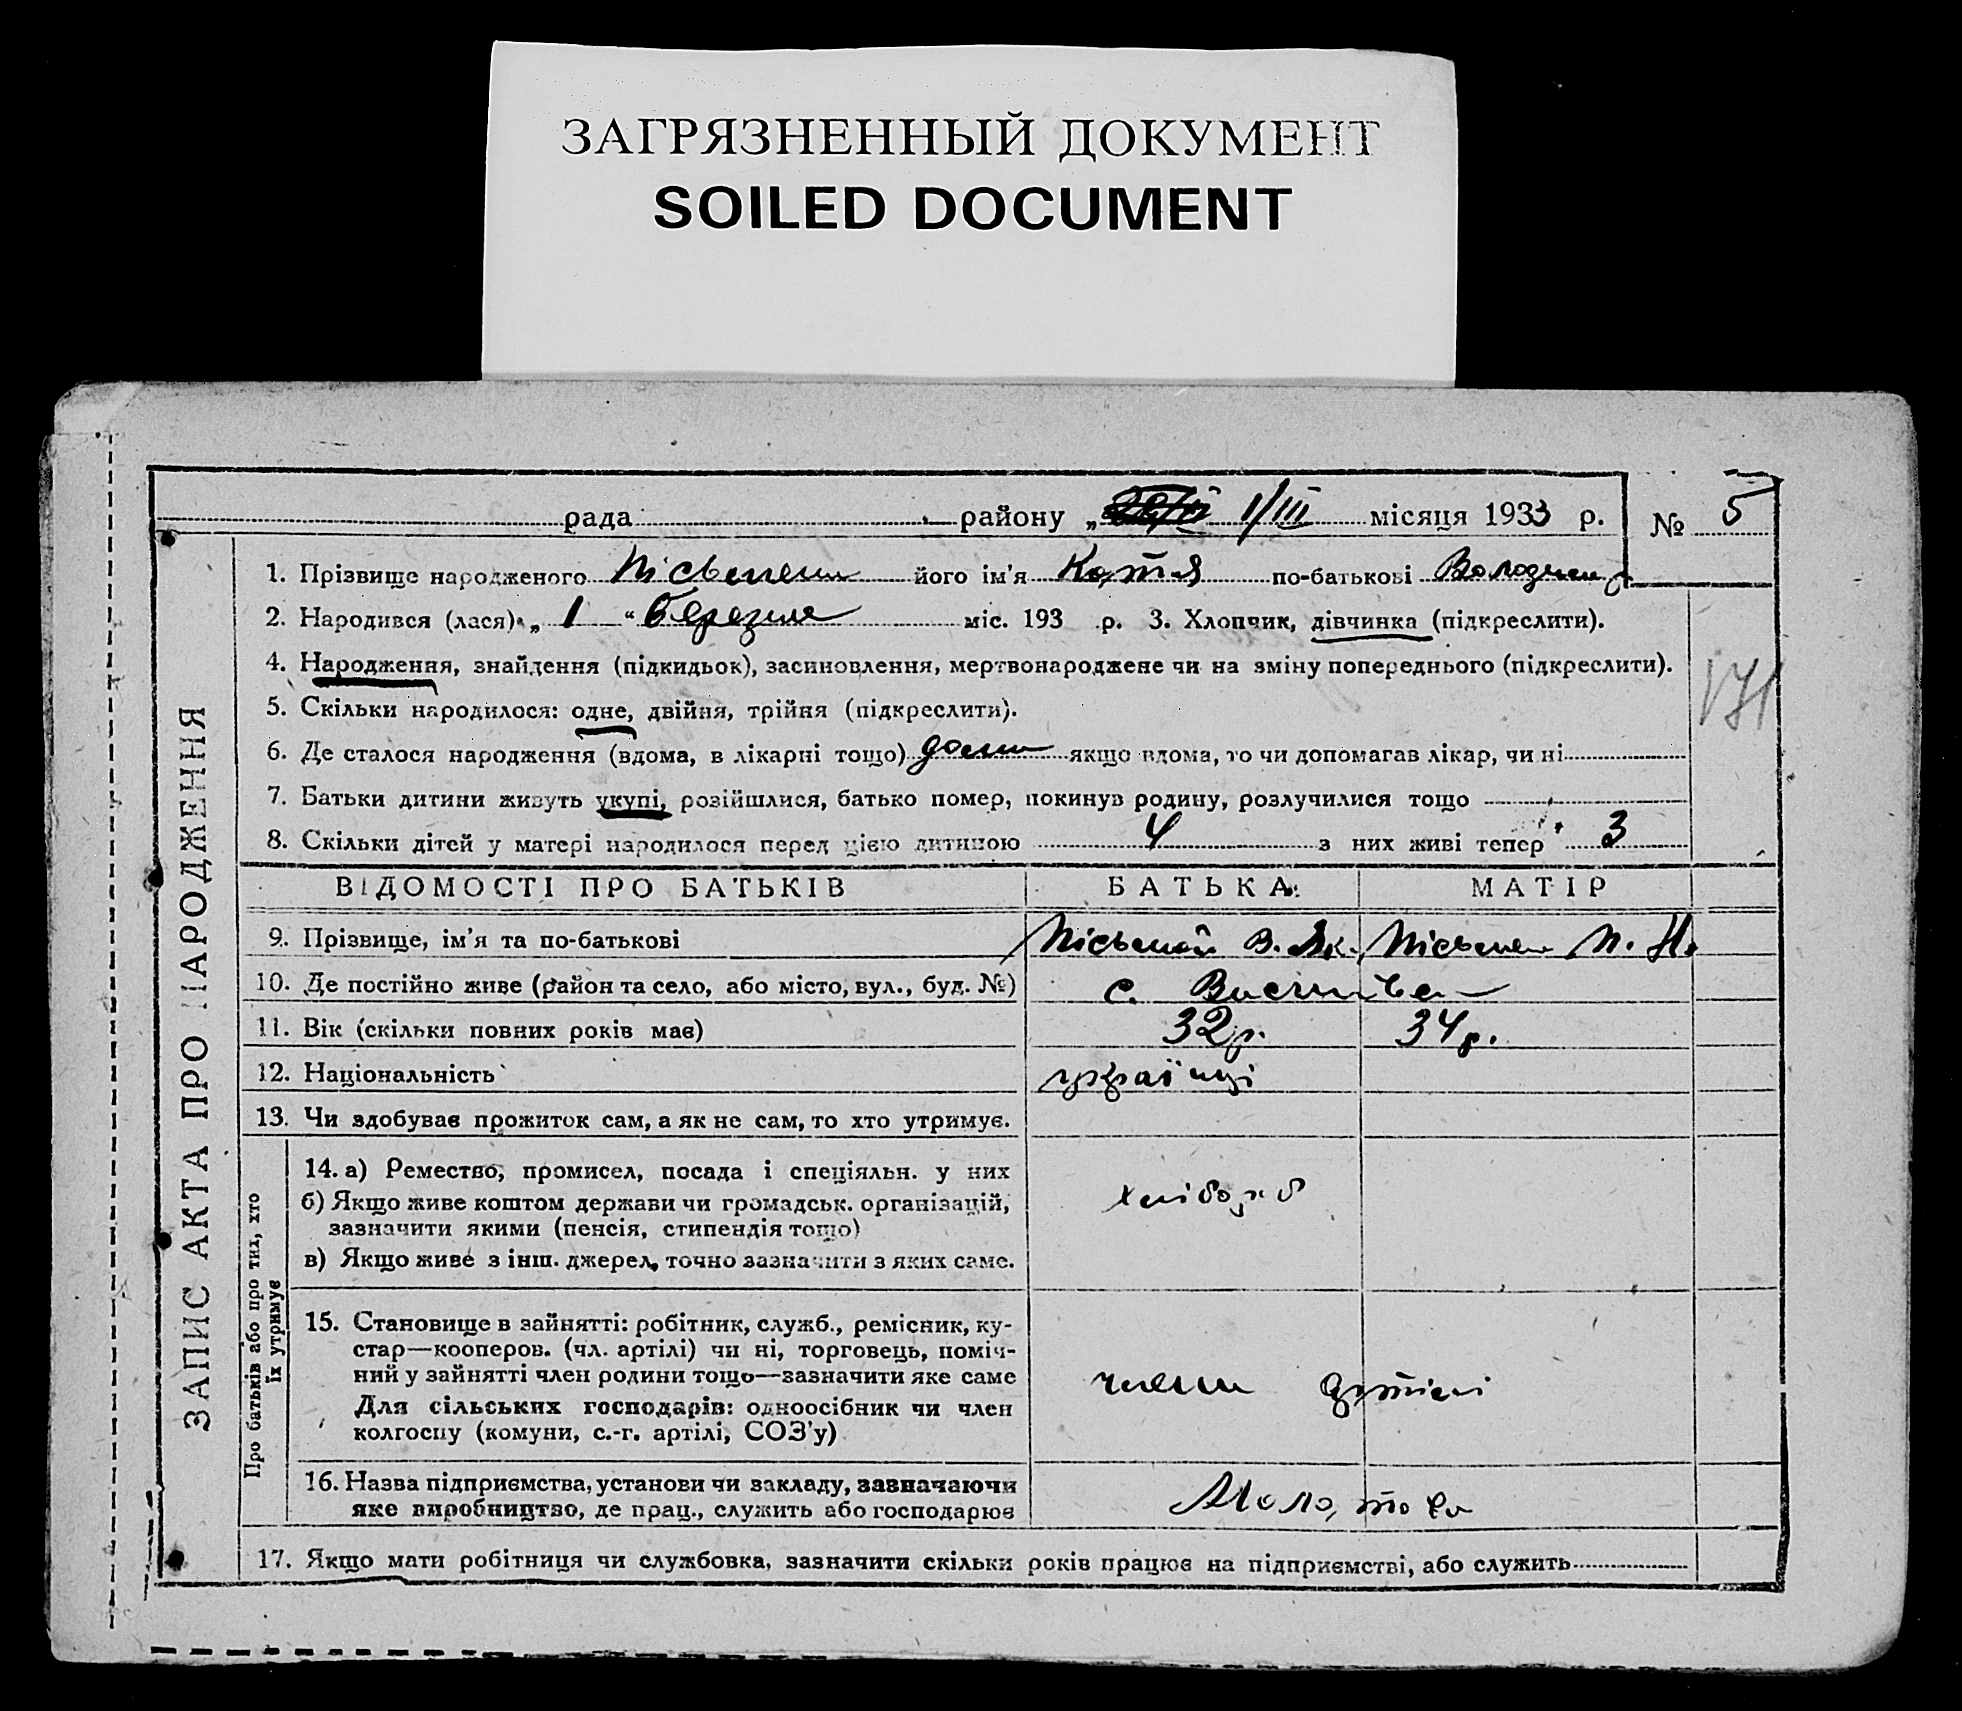 ЗАГРЯЗНЕННЫЙ ДОКУМЕНТ
SOILED DOCUMENT
рада району „ 1/III місяця 1933 р. № 5
ЗАПИС АКТА ПРО НАРОДЖЕННЯ
1. Прізвище народженого його ім’я Катя по-батькові
2. Народився (лася) „ 1 “ березня міс. 193 р. 3. Хлопчик, дівчинка (підкреслити).
4. Народження, знайдення (підкидьок), засиновлення, мертвонароджене чи на зміну попереднього (підкреслити).
171
5. Скільки народилося: одне, двійня, трійня (підкреслити).
6. Де сталося народження (вдома, в лікарні тощо) дома якщо вдома, то чи допомагав лікар, чи ні
7. Батьки дитини живуть укупі, розійшлися, батько помер, покинув родину, розлучилися тощо
8. Скільки дітей у матері народилося перед цією дитиною 4 з них живі тепер 3
ВІДОМОСТІ ПРО БАТЬКІВ БАТЬКА: МАТІР
9. Прізвище, ім’я та по-батькові В. Як. П. Н.
10. Де постійно живе (район та село, або місто, вул., буд. №) с.
11. Вік (скільки повних років має) 32 р. 34 р.
12. Національність українці
13. Чи здобуває прожиток сам, а як не сам, то хто утримує.
Про батьків або про тих, хто їх утримує
14. а) Ремество, промисел, посада і спеціяльн. у них
б) Якщо живе коштом держави чи громадськ. організацій, хлібороб
зазначити якими (пенсія, стипендія тощо)
в) Якщо живе з інш. джерел, точно зазначити з яких саме.
15. Становище в зайнятті: робітник, служб., ремісник, ку-
стар—кооперов. (чл. артілі) чи ні, торговець, поміч-
ний у зайнятті член родини тощо—зазначити яке саме члени артілі
Для сільських господарів: одноосібник чи член
колгоспу (комуни, с.-г. артілі, СОЗ’у)
16. Назва підприємства, установи чи закладу, зазначаючи Молотова
яке виробництво, де прац., служить або господарює
17. Якщо мати робітниця чи службовка, зазначити скільки років працює на підприємстві, або служить